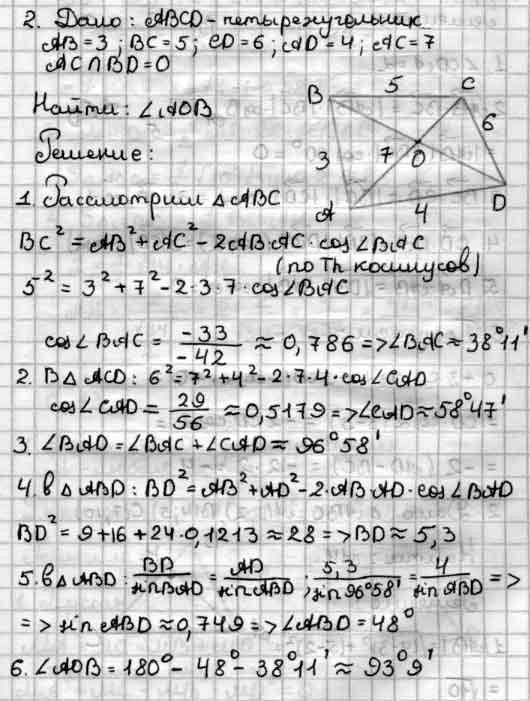 2. Дано: ABCD - четырехугольник
AB=3; BC=5; CD=6; AD=4; AC=7
AC∩BD=O
Найти: ∠AOB
Решение:
B
5
C
6
3
7
O
A
4
D
1. Рассмотрим △ABC
BC² = AB² + AC² - 2AB·AC·cos∠BAC
(по Th косинусов)
5² = 3² + 7² - 2·3·7·cos∠BAC
cos∠BAC = -33/-42 ≈ 0,786 => ∠BAC ≈ 38°11'
2. В △ACD: 6² = 7² + 4² - 2·7·4·cos∠CAD
cos∠CAD = 29/56 ≈ 0,5179 => ∠CAD ≈ 58°47'
3. ∠BAD = ∠BAC + ∠CAD ≈ 96°58'
4. в △ABD: BD² = AB² + AD² - 2·AB·AD·cos∠BAD
BD² = 9 + 16 + 24·0,1213 ≈ 28 => BD ≈ 5,3
5. в △ABD: BD/sin BAD = AD/sin ABD; 5,3/sin 96°58' = 4/sin ABD =>
=> sin ABD ≈ 0,749 => ∠ABD = 48°
6. ∠AOB = 180° - 48° - 38°11' ≈ 93°9'